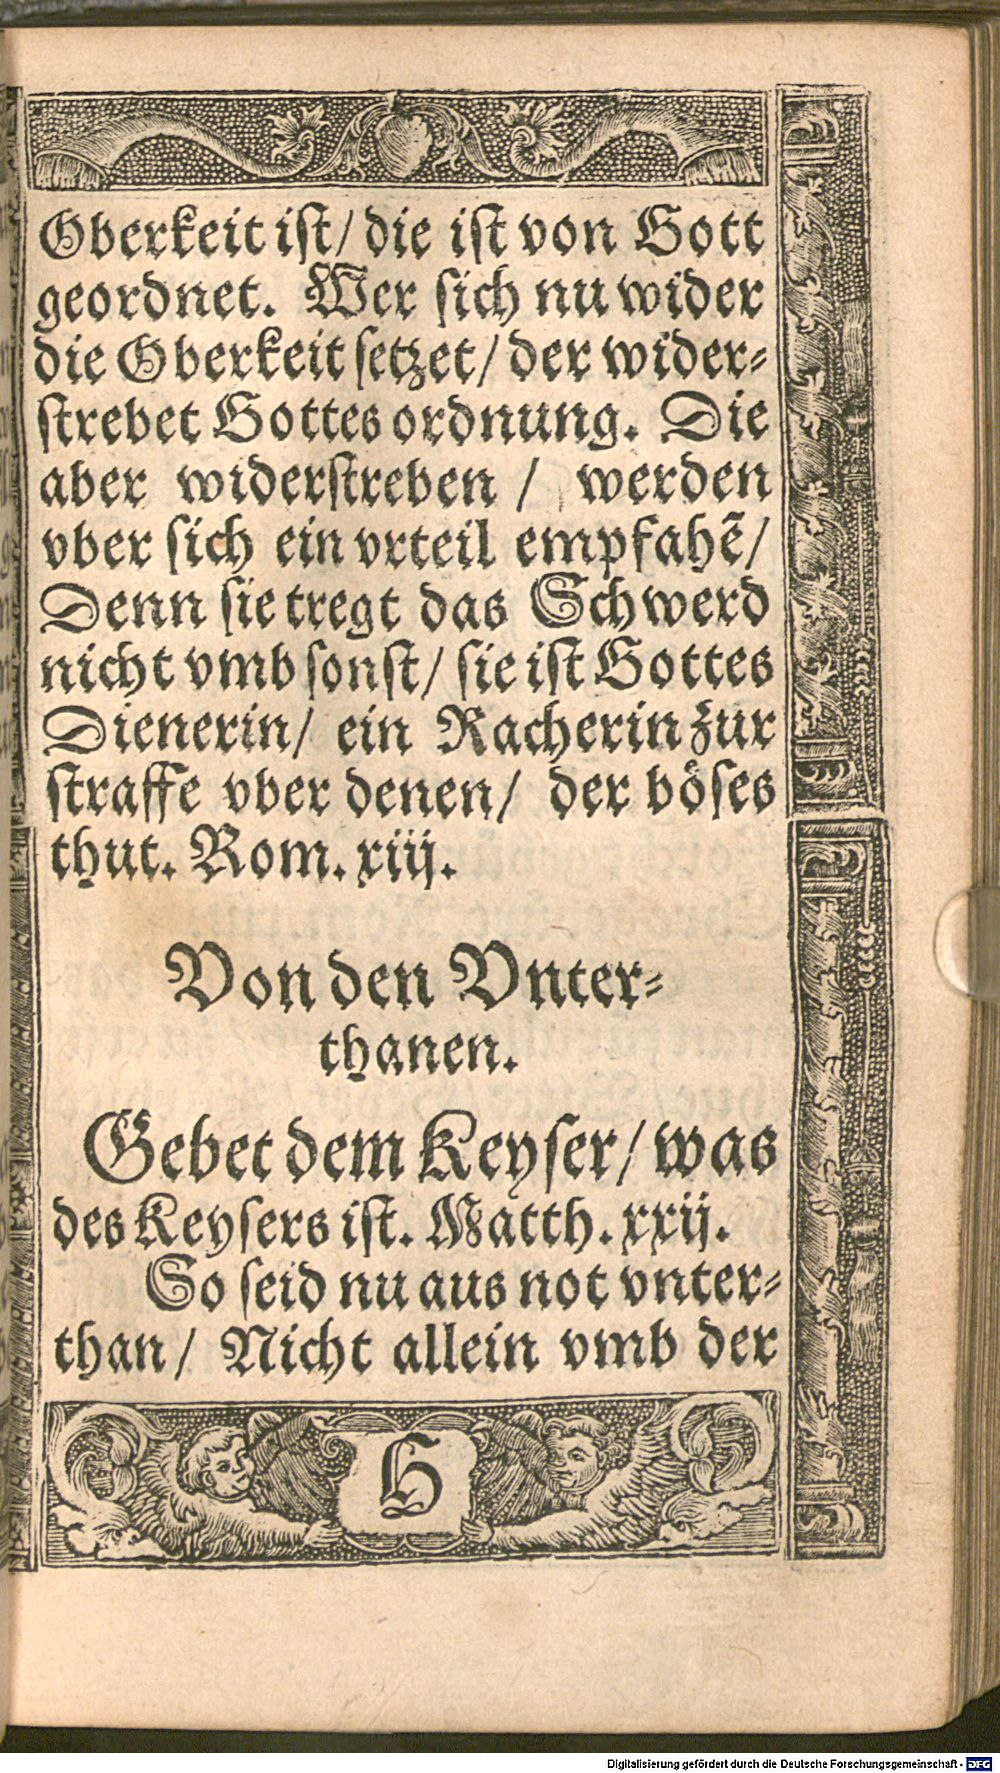 Oberkeit ist/ die ist von Gott
geordnet. Wer sich nu wider
die Oberkeit setzet/ der wider⸗
strebet Gottes ordnung. Die
aber widerstreben / werden
vber sich ein vrteil empfahẽ/
Denn sie tregt das Schwerd
nicht vmb sonst/ sie ist Gottes
Dienerin/ ein Racherin zur
straffe vber denen/ der böses
thut. Rom. xiij.
Von den Vnter⸗
thanen.
Gebet dem Keyser/ was
des Keysers ist. Matth. xxij.
So seid nu aus not vnter⸗
than/ Nicht allein vmb der
G
Digitalisierung gefördert durch die Deutsche Forschungsgemeinschaft - DFG